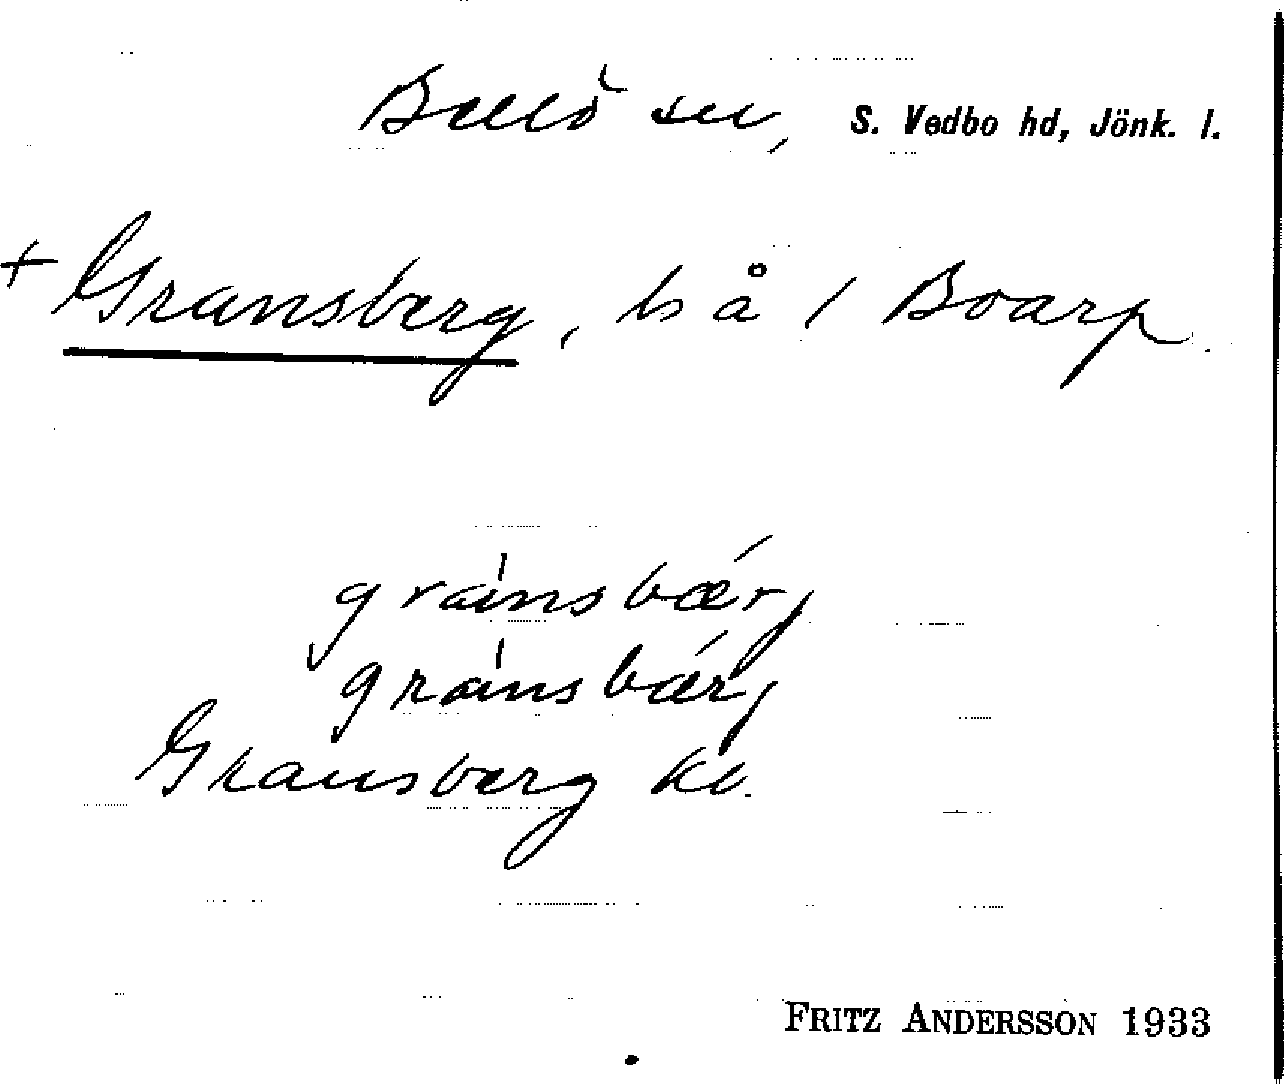 Bellö sn, S. Vedbo hd, Jönk. l.
+ Gransberg, bs å 1 Boarp.
gránsbǽrj
gránsbǽrj
Gransberg kb.
FRITZ ANDERSSON 1933